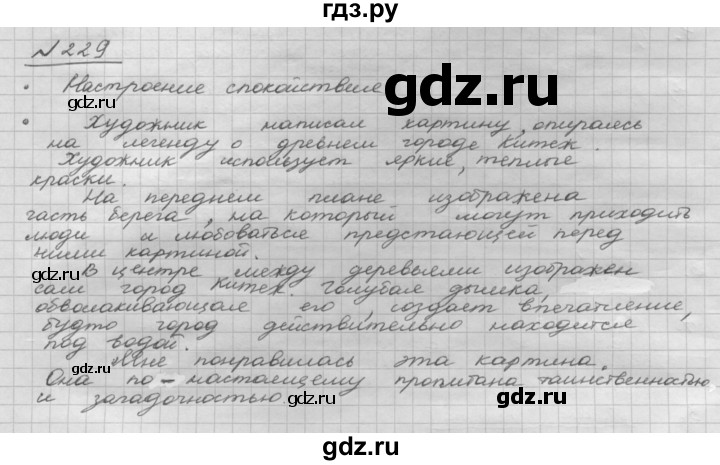 гдз.ру
№229
• Настроение спокойствие
• Художник написал картину, опираясь
на легенду о древнем городе Китеж.
Художник использует яркие, теплые
краски.
На переднем плане изображена
часть берега, на который могут приходить
люди и любоваться предстающей перед
ними картиной.
В центре между деревьями изображен
сам город Китеж. Голубая дымка,
обволакивающая его, создает впечатление,
будто город действительно находится
под водой.
Мне понравилась эта картина.
Она по-настоящему пропитана таинственностью
и загадочностью.
gdz.ru
gdz.ru
gdz.ru
gdz.ru
gdz.ru
gdz.ru
gdz.ru
gdz.ru